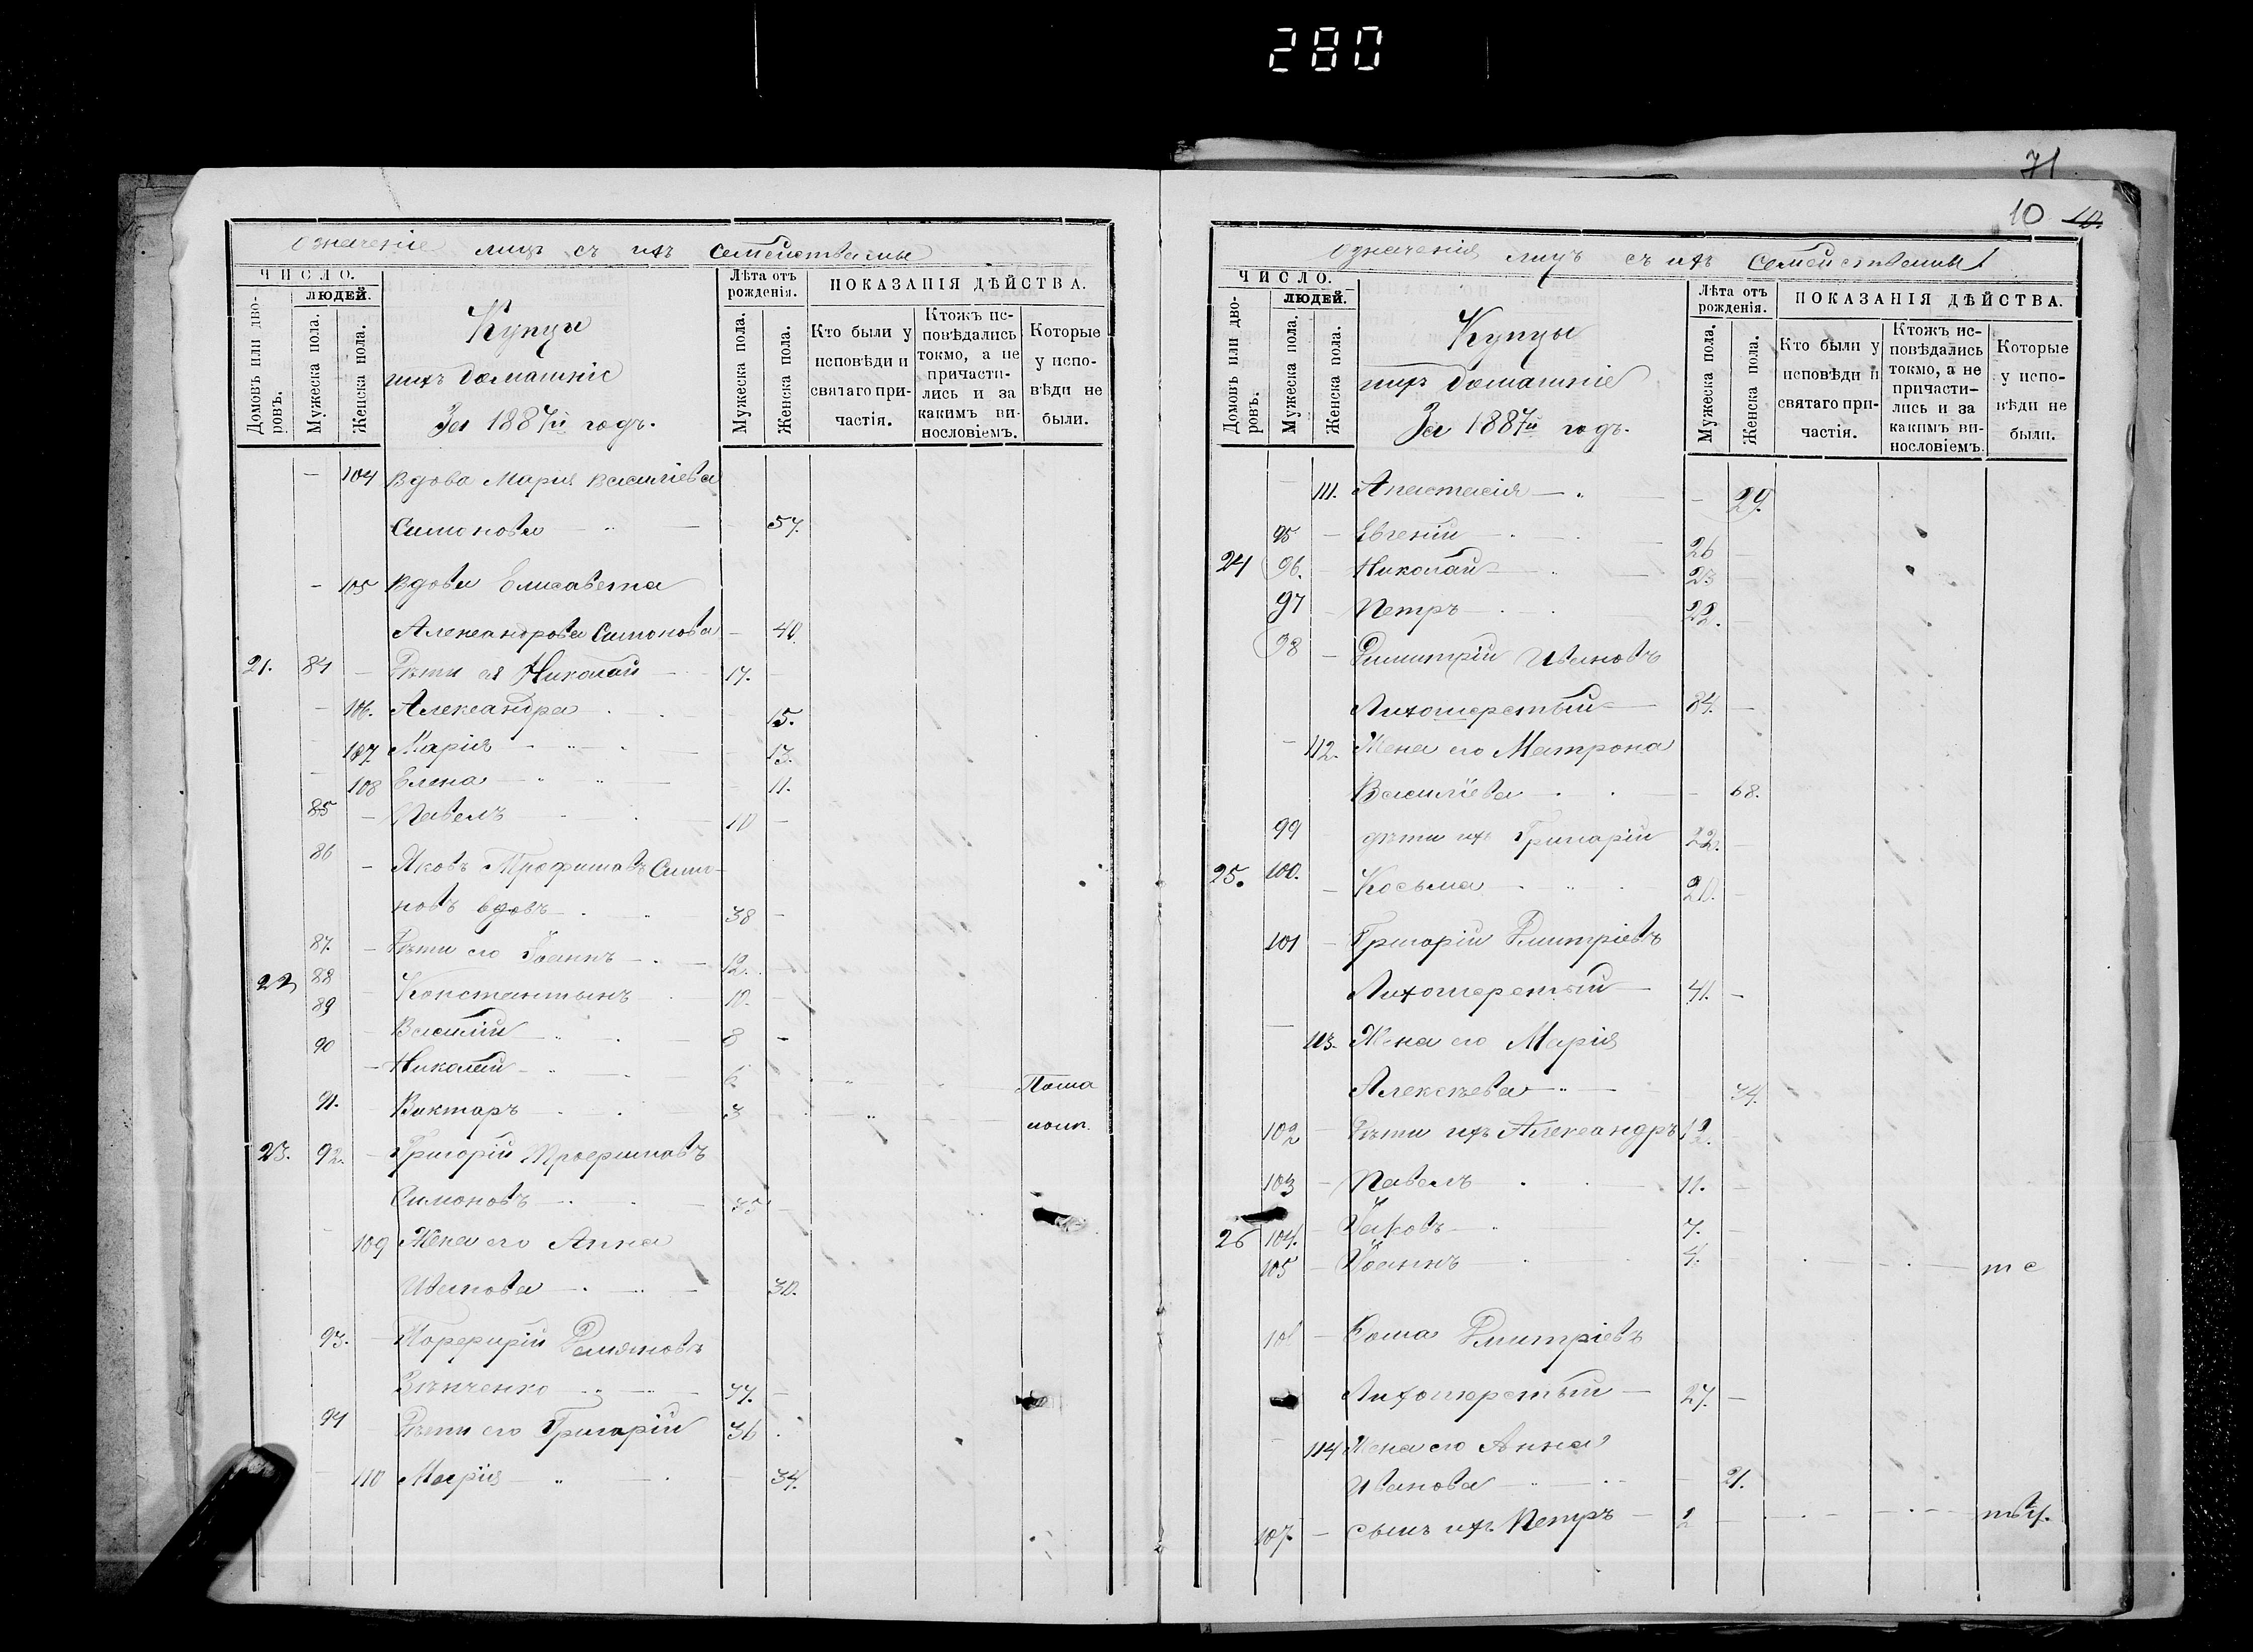 280
означеніе лицъ съ ихъ семействамы
ЧИСЛО.
Домовъ или дворовъ.
ЛЮДЕЙ.
Мужеска пола.
Женска пола.
Купци
ихъ домашніе
За 1887й годъ.
Лѣта отъ рожденія.
Мужеска пола.
Женска пола.
ПОКАЗАНІЯ ДѢЙСТВА.
Кто были у исповѣди и святаго причастія.
Ктожъ исповѣдались токмо, а не причастились и за какимъ винословіемъ.
Которые у исповѣди не были.
— 104 Вдова Мария Василіева
Симонова — 57.
— 105 Вдова Елисавета
Александрова Симонова — 40
21. 84 — Дѣти ея Николай — 17. —
— 106. Александра — 15.
107. Марія — 13.
— 108 Елена — 11.
85 — Павелъ — 10 —
86 — Яковъ Трофимовъ Симо-
новъ вдовъ — 38 —
87. — Дѣти его Іоаннъ — 12. —
22 88 — Константынъ 10. —
89 — Василій — 8 —
90 — Николай — 6 Пома
91. Виктаръ — 3 — лолѣт.
23. 92. — Григорій Трофимовъ
Симоновъ — 35 —
— 109 Жена его Анна
Иванова — 30.
93. — Порфирій Демяновъ
Зѣнченко — 77. —
94 — Дѣти его Григарій 36
— 110 Марія — 34.
71
10
означенія лицъ съ ихъ семействамы
ЧИСЛО.
Домовъ или дворовъ.
ЛЮДЕЙ.
Мужеска пола.
Женска пола.
Купцы
ихъ домашніе
За 1887й годъ.
Лѣта отъ рожденія.
Мужеска пола.
Женска пола.
ПОКАЗАНІЯ ДѢЙСТВА.
Кто были у исповѣди и святаго причастія.
Ктожъ исповѣдались токмо, а не причастились и за какимъ винословіемъ.
Которые у исповѣди не были.
— 111. Анастасія — 29.
95 — Евгеній — 26 —
24 96. — Николай — 23 —
97 — Петръ — 22. —
98 — Димитрій Ивановъ
Лихошерстый — 84. —
— 112. Жена его Матрона
Василіева — 68.
99 дѣти ихъ Григарій 22. —
25. 100. — Косьма — 20. —
101 — Григорій Дмитріевъ
Лихошерстый — 41. —
— 113. Жена его Марія
Алексѣева — 34.
102 — Дѣти ихъ Александръ 12. —
103 — Павелъ — 11. —
26 104. — Іаковъ — 7. —
105 — Іоаннъ — 4. — т с
Фома Дмитріевъ
Лихошерстый — 27. —
— 114 Жена его Анна
Иванова — 21.
107. — сынъ ихъ Петръ — 2 —